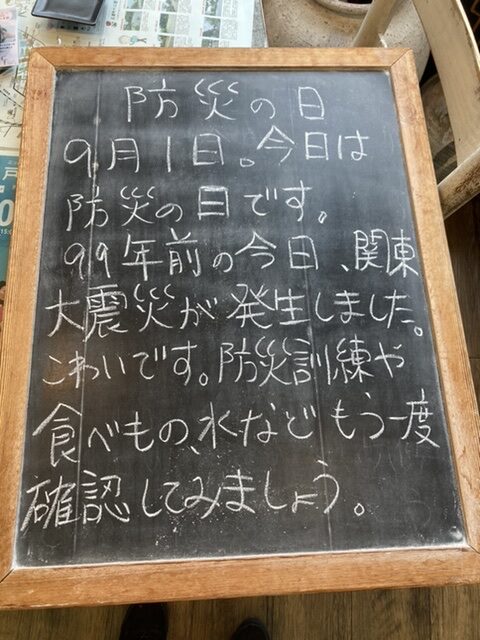 防災の日
9月1日。今日は
防災の日です。
99年前の今日、関東
大震災が発生しました。
こわいです。防災訓練や
食べもの、水などもう一度
確認してみましょう。